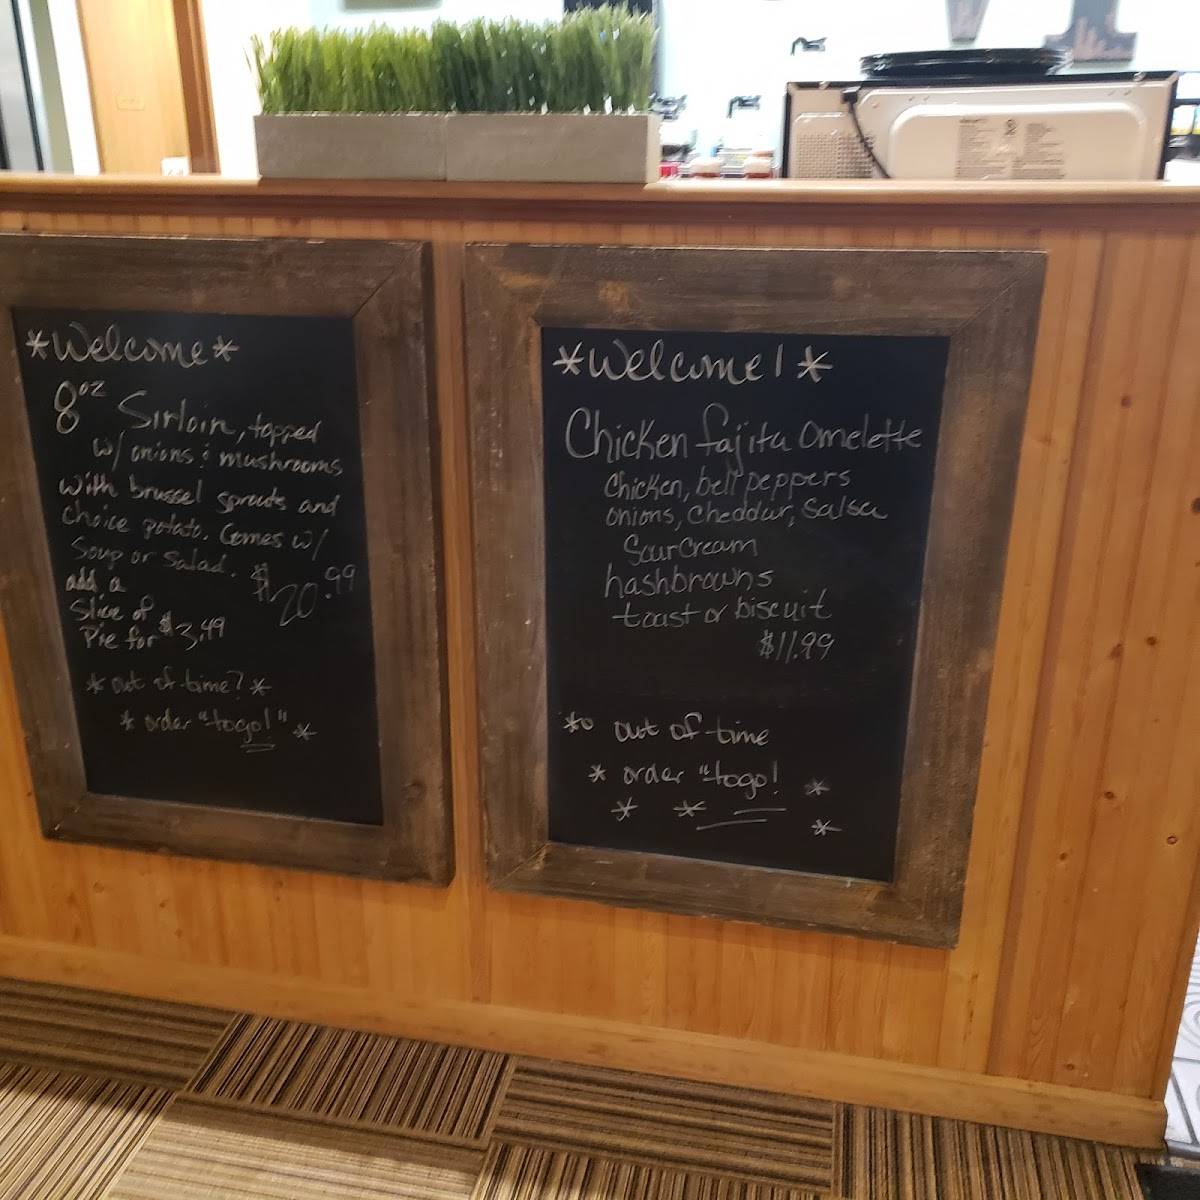 *Welcome*
8oz Sirloin, topped
w/ onions & mushrooms
with brussel sprouts and
choice potato. Comes w/
Soup or Salad.
$20.99
add a
Slice of
Pie for $3.49
*out of time?*
*order "togo!"*
*Welcome!*
Chicken fajita omelette
Chicken, bell peppers
onions, Cheddar, Salsa
Sour Cream
hashbrowns
toast or biscuit
$11.99
* out of time
* order "togo! *
* * *